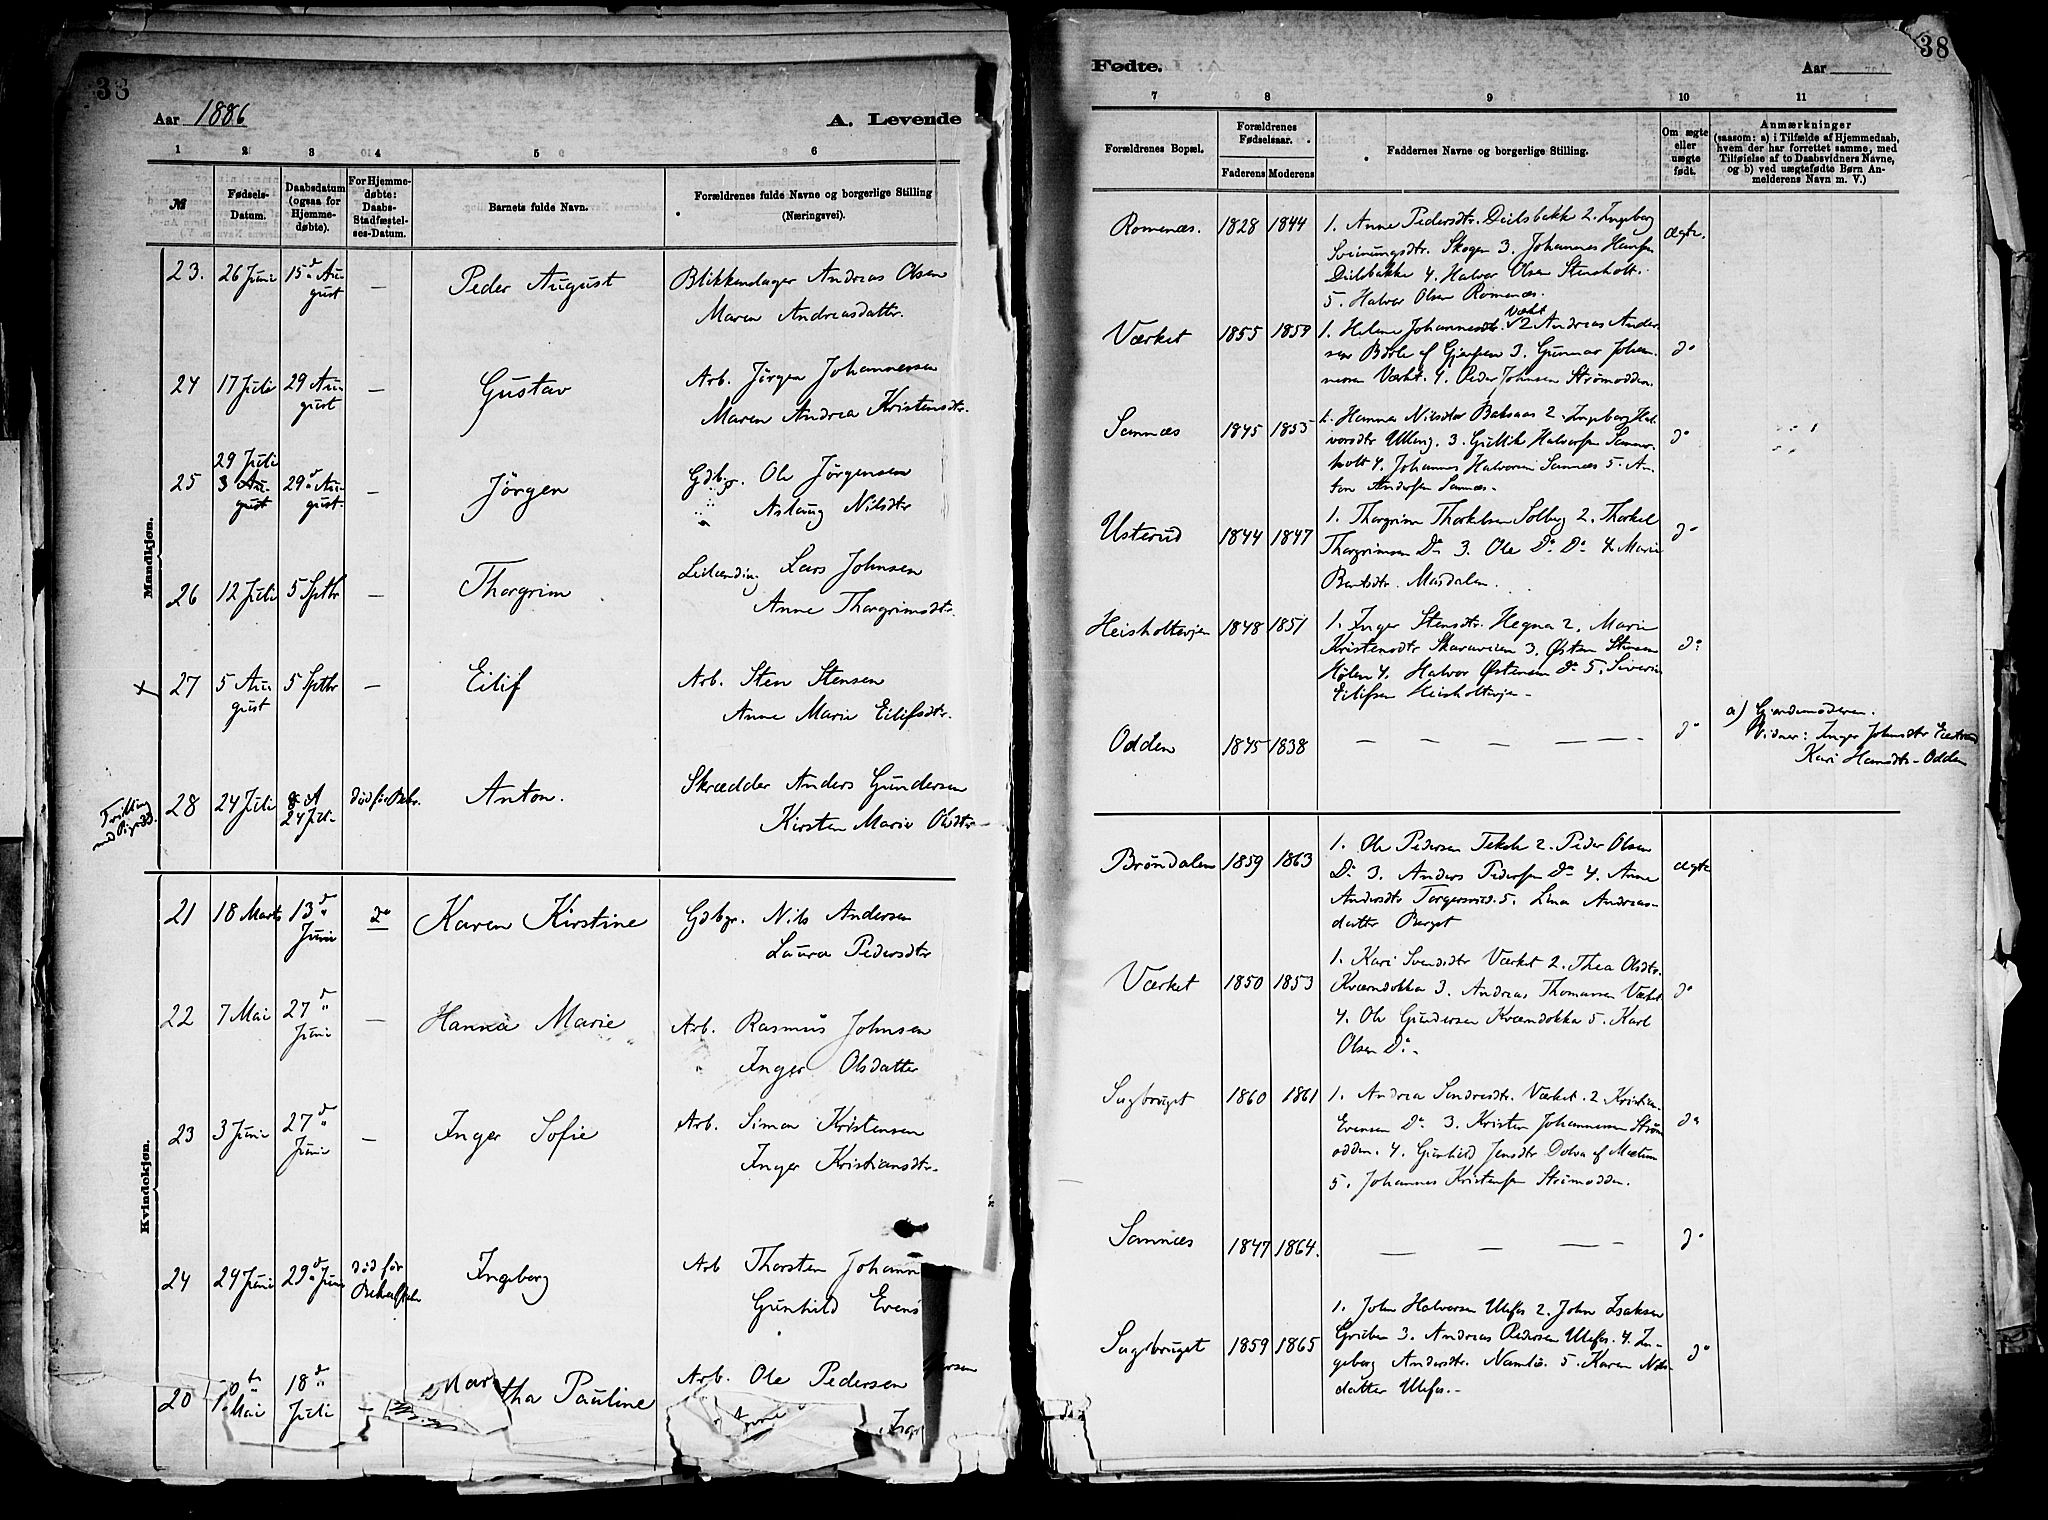 38
Aar 1886
A. Levende
1 2 3 4 5 6
№
Fødsels-
Datum.
Daabsdatum
(ogsaa for
Hjemme-
døbte).
For Hjemme-
døbte:
Daabs-
Stadfæstel-
ses-Datum.
Barnets fulde Navn.
Forældrenes fulde Navne og borgerlige Stilling
(Næringsvei).
Mandkjøn.
23. 26 Juni 15d Au-
gust — Peder August Blikkenslager Andreas Olsen
Maren Andreasdatter.
24 17 Juli 29 Au-
gust — Gustav Arb. Jørgen Johannesen
Maren Andrea Kristensdtr.
25 29 Juli
3 Au-
gust 29d Au-
gust. — Jörgen Gdbgr. Ole Jørgensen
Aslaug Nilsdtr
26 12 Juli 5 Sptbr — Thorgrim Leilænding Lars Johnsen
Anne Thorgrimsdtr.
27 5 Au-
gust 5 Sptbr — Eilif Arb. Sten Stensen
Anne Marie Eilifsdtr.
Trilling
28 24 Juli 24 Juli Anton. Skrædder Anders Gundersen
Kirsten Marie Olsdtr
Kvindekjøn.
21 18 Marts 13d
Juni do Karen Kirstine Gdbgr. Nils Andersen
Laura Pedersdtr
22 7 Mai 27d
Juni — Hanna Marie Arb. Rasmus Johnsen
Inger Olsdatter
23 3 Juni 27d
Juni — Inger Sofie Arb. Simon Kristensen
Inger Kristiansdtr.
24 29 Juni 29d Juni død før Ingeborg Arb Thorsten Johann
Gunhild Evens
20 Mai 18d
Juli — Martha Pauline Arb. Ole Pedersen
38
Fødte.
Aar
7 8 9 10 11
Forældrenes Bopæl.
Forældrenes
Fødselsaar.
Faderens Moderens
Faddernes Navne og borgerlige Stilling.
Om ægte
eller
uægte
født.
Anmærkninger
(saasom: a) i Tilfælde af Hjemmedaab,
hvem der har forrettet samme, med
Tilføielse af to Daabsvidners Navne,
og b) ved uægtefødte Børn An-
melderens Navn m. V.)
Romenæs. 1828 1844 1. Anne Pedersdtr. Dilsbakke 2. Ingeborg
Sveinungsdtr. Skogen 3. Johannes Hansen
Dilsbakke 4. Halvor Olsen Stensholt.
5. Halvor Olsen Romenæs. ægte.
Værket 1855 1859 1. Helene Johannesdtr. Værket 2 Andreas Ander-
sen Börle af Gjerpen 3. Gunnar Johan-
nesen Værket. 4. Peder Johnsen Strömodden. do
Sannæs 1845 1855 1. Hanna Nilsdtr Baksaas 2. Ingeborg Hal-
vorsdtr Ulleng. 3. Gullik Halvorsen Sannes-
holt 4. Johannes Halvorsen Sannæs 5. An-
ton Andersen Sannæs. do
Usterud 1844 1847 1. Thorgrim Thorkilsen Solberg 2. Thorkel
Thorgrimsen Do 3. Ole Do Do 4. Marie
Bentsdtr. Magdalen. do
Heisholtveien 1848 1851 1. Inger Stensdtr. Hegna 2. Marie
Kristensdtr Skaraveien 3. Østen Stensen
Hølen 4. Halvor Østensen Do 5. Severin
Eilifsen Heisholtveien. do
Odden 1845 1838 — — — — — do a) Gjordemoderen.
Vidner: Inger Johnsdtr
Kari Hansdtr. Odden
Bröndalen 1859 1863 1. Ole Pedersen Teksle 2. Peder Olsen
Do 3. Anders Pedersen Do 4. Anne
Andersdtr Torgersrud. 5. Lina Andreas-
datter Berget ægte
Værket 1850 1853 1. Kari Svendsdtr Værket 2. Thea Olsdtr.
Kværndokka 3. Andreas Thomassen Værket
4. Ole Gundersen Kværndokka 5. Karl
Olsen Do. do
Sagbruget 1860 1861 1. Andrea Sondresdtr. Værket. 2 Kristian
Evensen Do 3. Kristen Johannesen Strøm-
odden. 4. Gunhild Jensdtr Dolva af Mælum
5. Johannes Kristensen Strömodden. do
Sannæs 1847 1864. — — — — do
Sagbruget 1859 1865 1. John Halvorsen Ulefos 2. John Isaksen
Gruben 3. Andreas Pedersen Ulefos. 4. In-
geborg Andersdtr. Namlös. 5. Karen Nils-
datter Ulefos. do